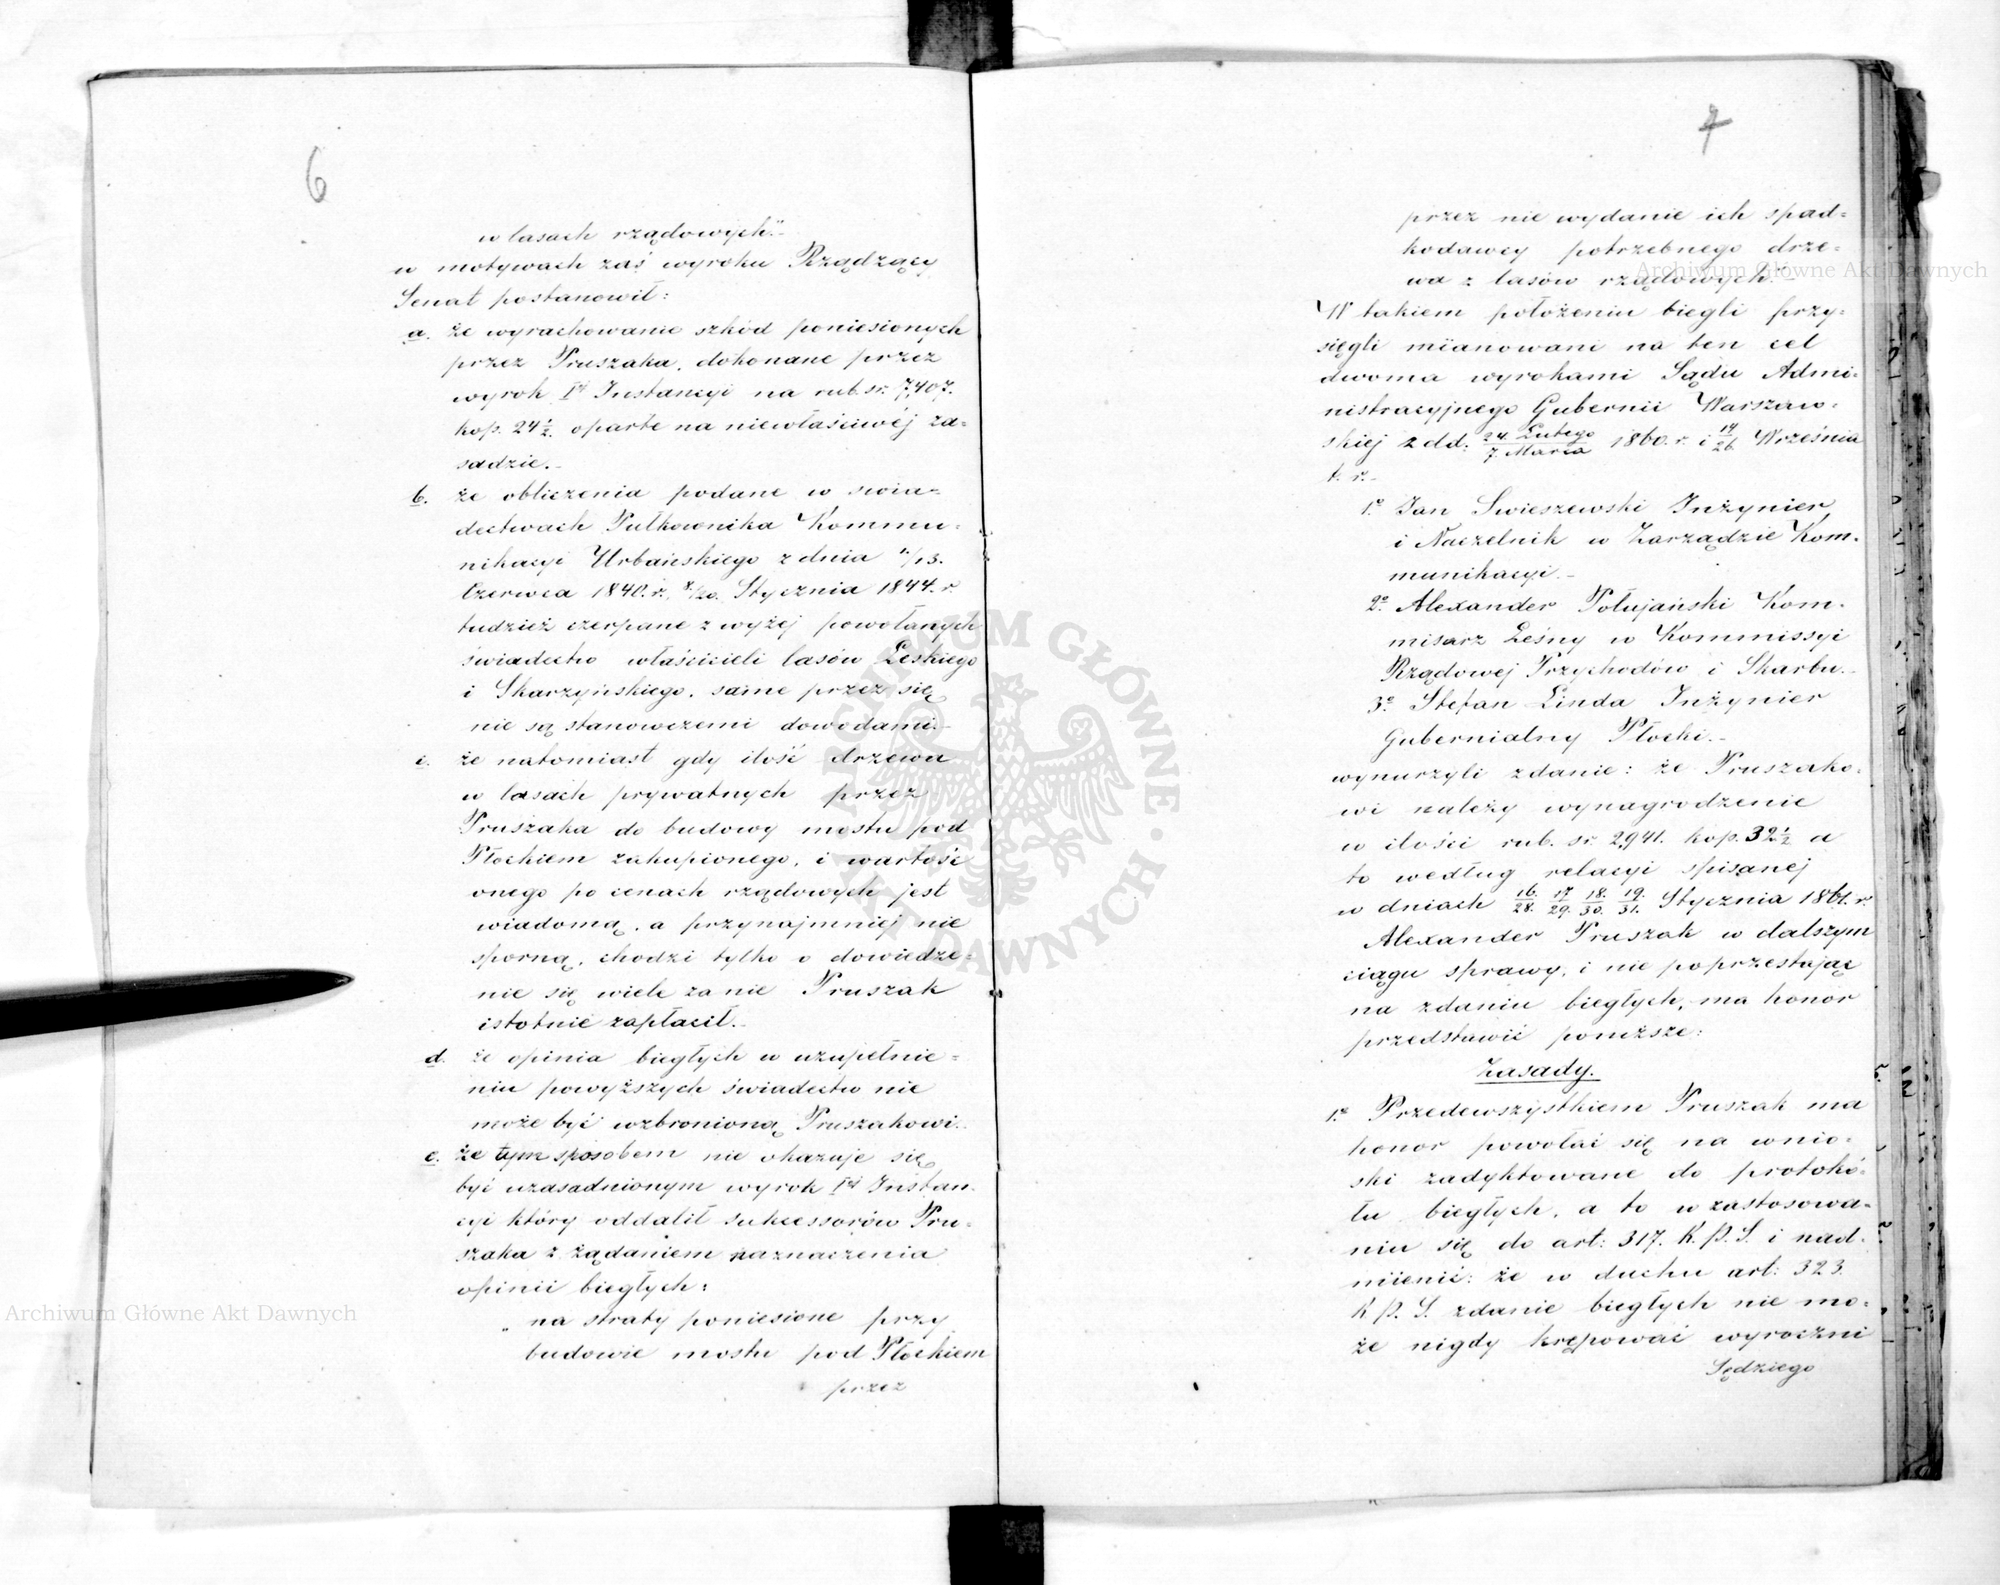 6
w lasach rządowych."-
w motywach zaś wyroku Rządzący
Senat postanowił:
a. że wyrachowanie szkód poniesionych
przez Pruszaka, dokonane przez
wyrok Iej Instancyi na rub. sr. 7,407.
kop. 24½. oparte na niewłaściwéj za=
sadzie.-
b. że obliczenia podane w swia=
dectwach Pułkownika Kommu-
nikacyi Urbańskiego z dnia 1/13.
Czerwca 1840. r. 8/20. Stycznia 1844. r.
tudzież czerpane z wyżej powołanych
świadectw właścicieli lasów Leskiego
i Skarzyńskiego, same przez się
nie są stanowczemi dowodami.-
c. że natomiast gdy ilość drzewa
w lasach prywatnych przez
Pruszaka do budowy mostu pod
Płockiem zakupionego, i wartość
onego po cenach rządowych jest
wiadomą, a przynajmniej nie
sporną, chodzi tylko o dowiedze=
nie się wiele za nie Pruszak
istotnie zapłacił.-
d. że opinia biegłych w uzupełnie=
niu powyższych świadectw nie
może być wzbronioną Pruszakowi.
e. że tym sposobem nie okazuje się
być uzasadnionym wyrok Iej Instan-
cyi który oddalił sukcessorów Pru-
szaka z żądaniem naznaczenia
opinii biegłych:
„na straty poniesione przy
budowie mostu pod Płockiem
przez
7
przez nie wydanie ich spad=
kodawcy potrzebnego drze=
wa z lasów rządowych."
W takiem położeniu biegli przy-
sięgli mianowani na ten cel
dwoma wyrokami Sądu Admi-
nistracyjnego Gubernii Warszaw-
skiej z dd. 24. Lutego/7. Marca 1860. r. i 14/26. Września
t. r.-
1o Jan Swieszewski Inżynier
i Naczelnik w Zarządzie Kom-
munikacyi.-
2o Alexander Połujański Kom-
misarz Leśny w Kommissyi
Rządowej Przychodów i Skarbu.-
3o Stefan Linda Inżynier
Gubernialny Płocki.-
wynurzyli zdanie: że Pruszako-
wi należy wynagrodzenie
w ilości rub. sr. 2,941. kop. 32½ a
to według relacyi spisanej
w dniach 16./28. 17/29. 18./30. 19./31. Stycznia 1861. r.
Alexander Pruszak w dalszym
ciągu sprawy, i nie poprzestając
na zdaniu biegłych, ma honor
przedstawić poniższe:
Zasady.
1o Przedewszystkiem Pruszak ma
honor powołać się na wnio-
ski zadyktowane do protokó-
łu biegłych, a to w zastosowa-
niu się do art: 317. K. P. S. i nad-
mienić: że w duchu art: 323.
K P. S. zdanie biegłych nie mo-
że nigdy krępować wyroczni
Sędziego
Archiwum Główne Akt Dawnych
Archiwum Główne Akt Dawnych
ARCHIWUM GŁÓWNE AKT DAWNYCH